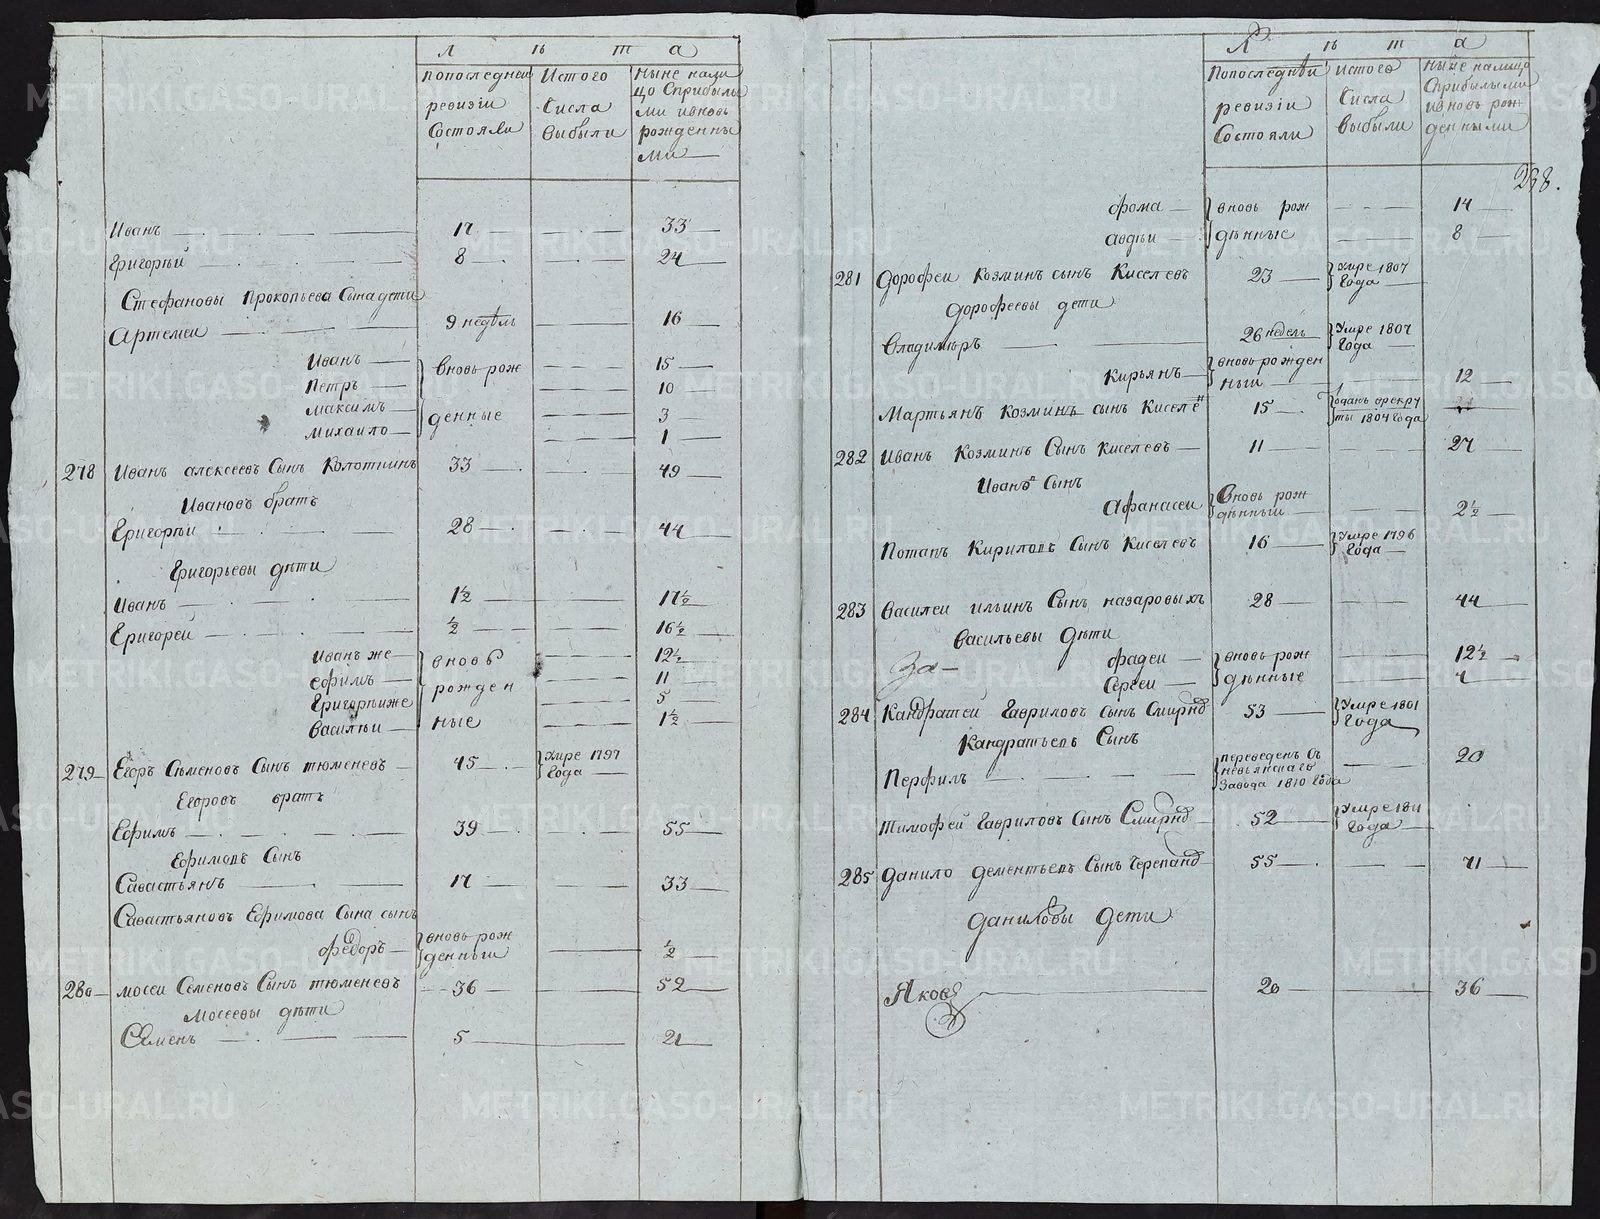 лѣта
попоследнеи ревизіи Состояли
Истого Числа выбыли
ныне налицо Сприбылыми ивновь рожденными
Иванъ 17 33
Григорѣй 8 24
Стефановы Прокопьева Сына дети
Артемеи 9 недѣль 16
Иванъ вновь рож 15
Петръ 10
Максимъ денные 3
Михаило 1
278 Иванъ алексеевъ Сынъ Колоткинъ 33 49
Ивановъ братъ
Григорѣи 28 44
Григорьевы дѣти
Иванъ 1½ 17½
Григорей ½ 16½
Иванъ же вновь 12½
ефимъ рожден 11
Григорѣиже 5
Василѣи ные 1½
279 Егоръ Сѣменовъ Сынъ тюменевъ 45 Умре 1797 Года
Егоровъ братъ
Ефимъ 39 55
Ефимовъ Сынъ
Савастьянъ 17 33
Савастьяновъ Ефимова Сына сынъ
Федоръ вновь рож денныи ½
280 мосеи Семеновъ Сынъ тюменевъ 36 52
Мосеевы дѣти
Семенъ 5 21
Лѣта
Попоследнѣи ревизіи Состояли
истого Числа выбыли
ныне налицо Сприбылыми ивновь рожденными
298.
фома вновь рож 14
авдѣи дѣнные 8
281 Дорофеи Козминъ сынъ Киселевъ 23 Умре 1807 Года
Дорофеевы дети
Владимѣръ 26 недель Умре 1807 Года
Кирьянъ вновь рожден ныи 12
Мартьянъ Козминъ сынъ Киселе 15 отданъ врекру ты 1804 года
282 Иванъ Козминъ Сынъ Киселевъ 11 27
Иванъ Сынъ
Афанасеи Вновь рож дѣнныи 2½
Потапъ Кириловъ Сынъ Киселевъ 16 Умре 1796 Года
283 Василеи ильинъ Сынъ назаровыхъ 28 44
Васильевы Дѣти
За фадеи вновь рож 12½
Сергеи дѣнные 7
284 Кандратей Гавриловъ сынъ Смирнов 53 Умре 1801 Года
Кандратьевъ Сынъ
Перфилъ переведенъ съ невьянскаго Завода 1810 Года 20
Тимофей Гавриловъ Сынъ Смирнов 52 Умре 1811 Года
285 Данило Дементьевъ Сынъ Черепанов 55 71
Даниловы Дети
Яковъ 20 36
METRIKI.GASO-URAL.RU